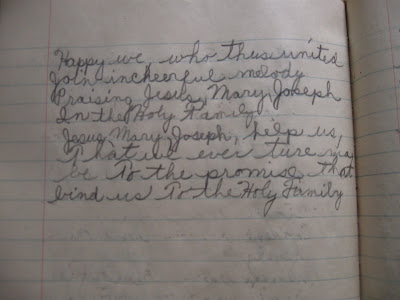 Happy we, who thus united
Join in cheerful melody
Praising Jesus, Mary, Joseph
In the Holy Family.
Jesus, Mary, Joseph, help us,
That we ever ture may
be To the promise That
bind us To the Holy Family